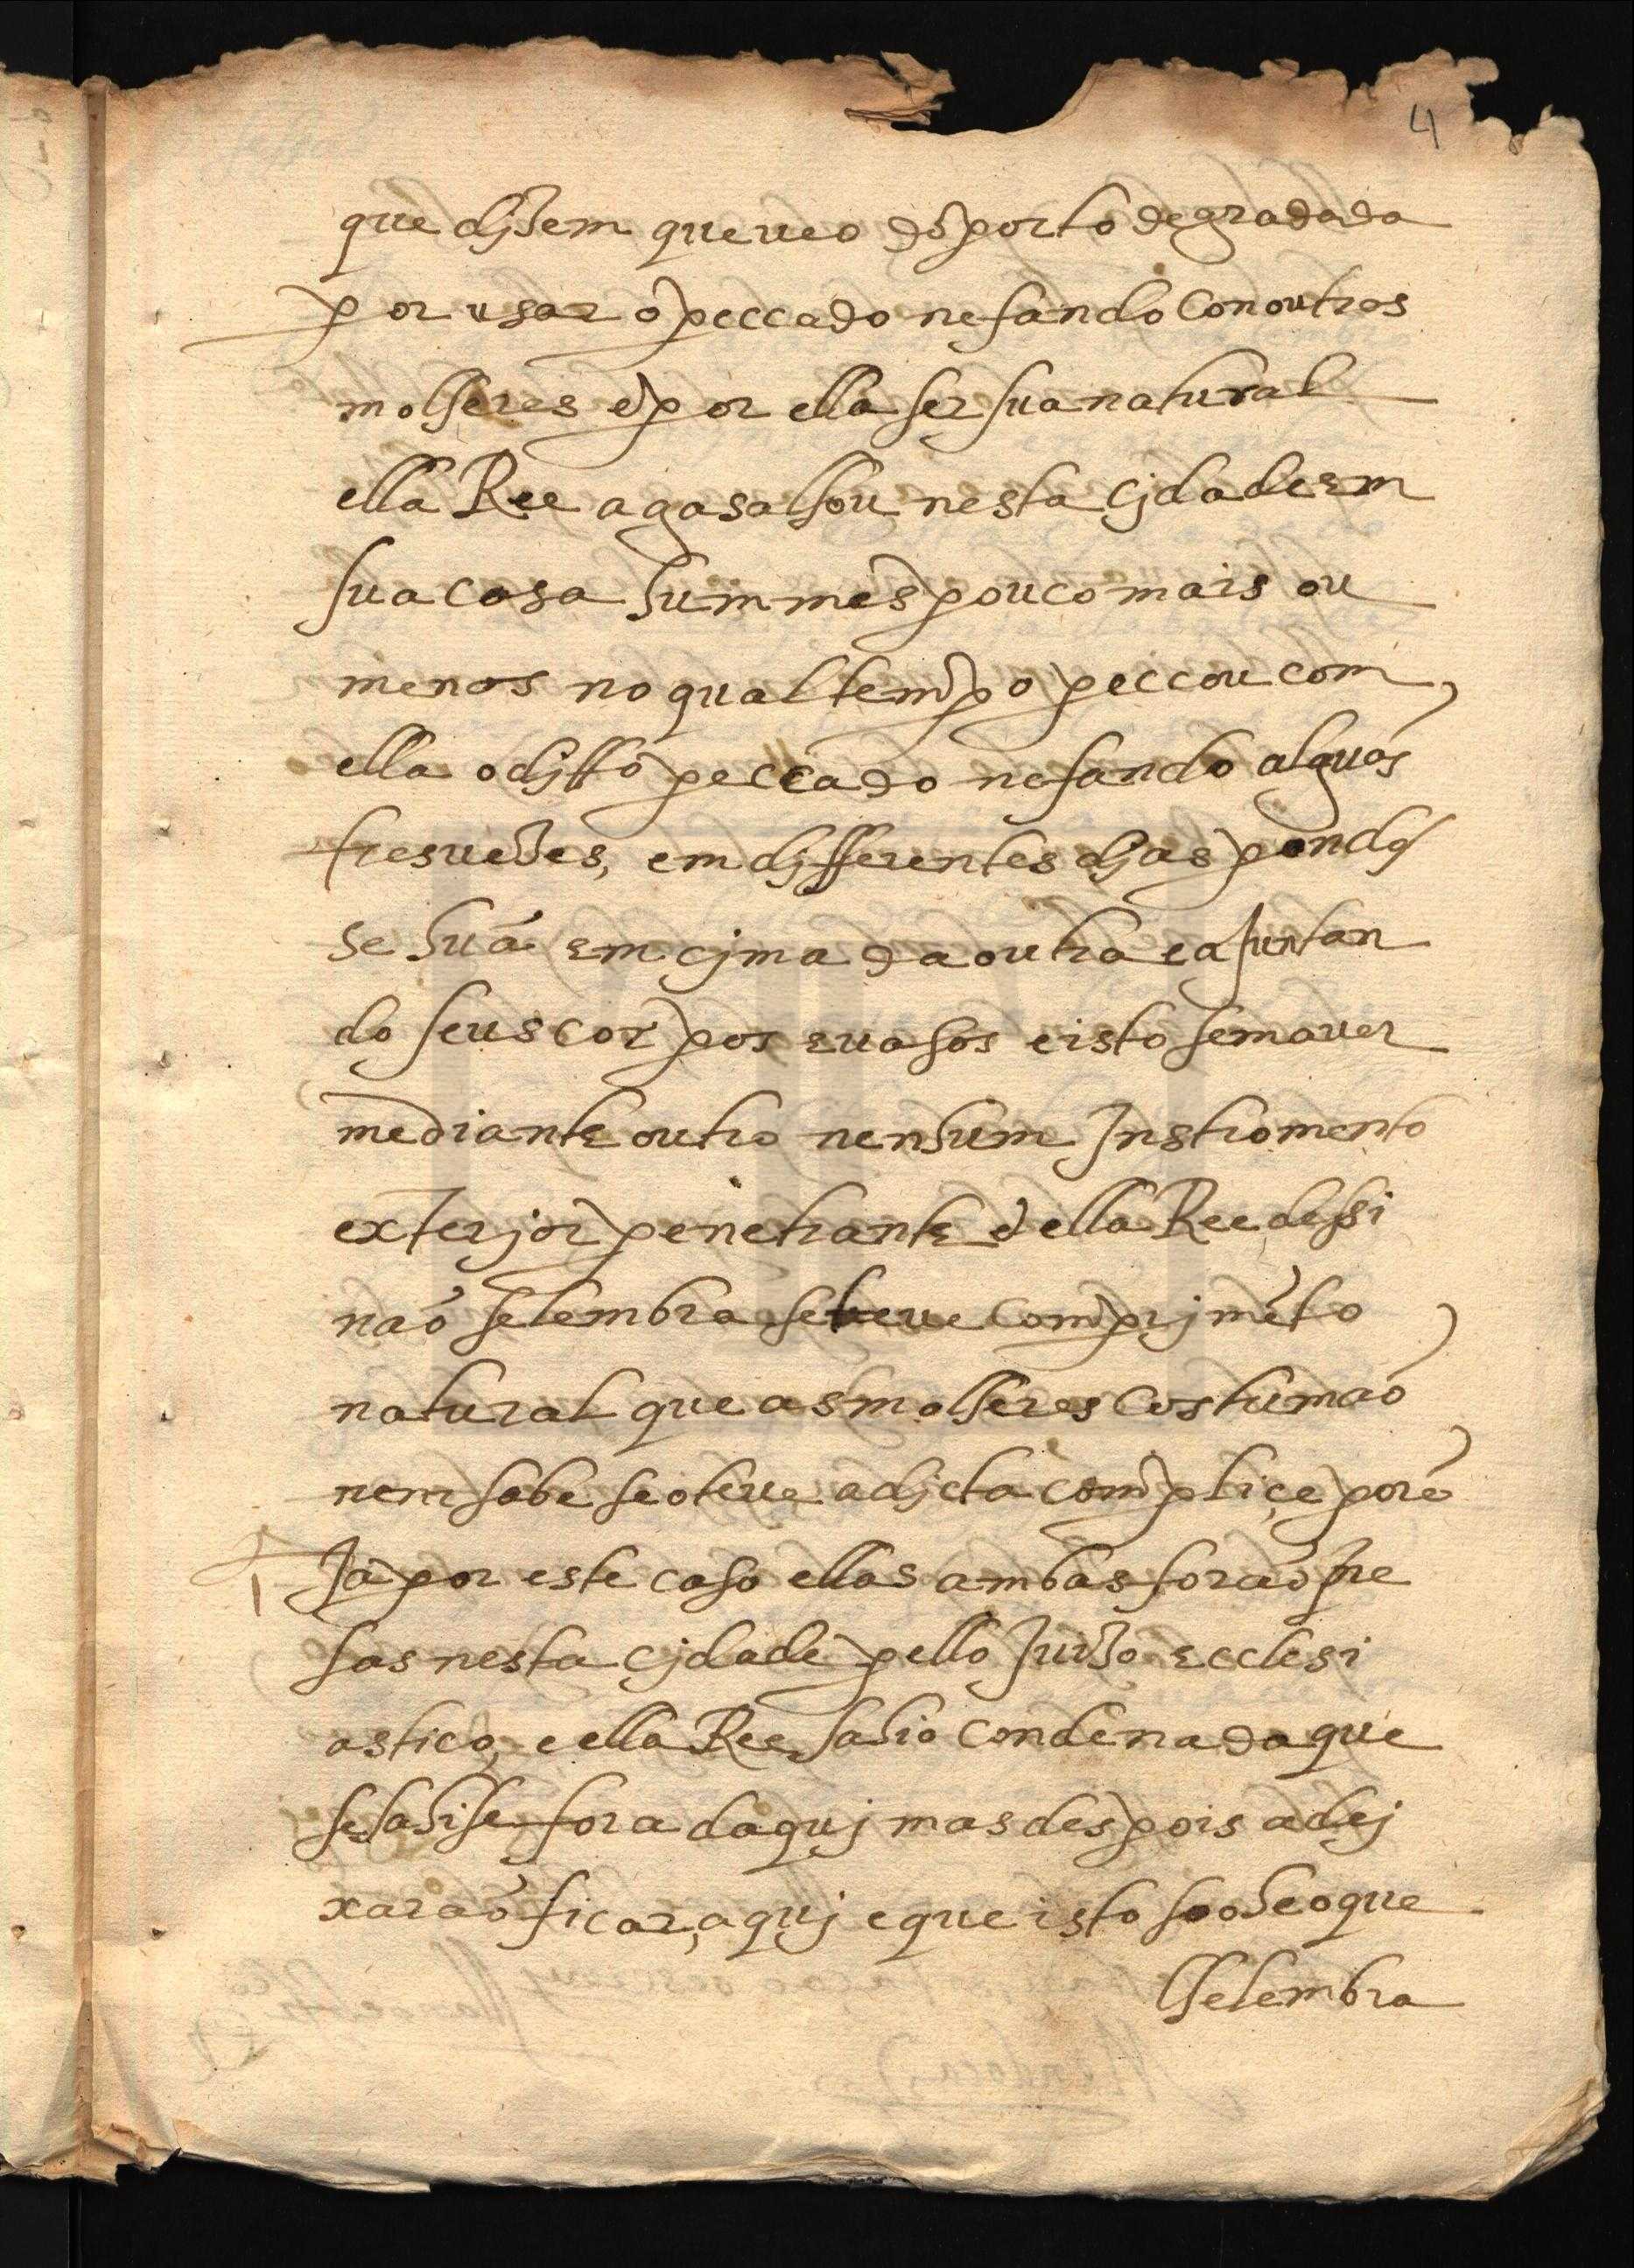 4
que djzem que veo do porto degradada
por usar o peccado nefando con outras
molheres e por ella ser sua natural
ella Ree agasalhou nesta cjdade em
sua casa hum mes pouco mais ou
menos no qual tempo peccou com
ella o djtto peccado nefando alguas
tres vezes, em djfferentes djas pondo
se hũa em cjma da outra e ajuntan
do seus corpos e vasos e isto sem aver
mediante outro nenhum Instromento
exterjor penetrante e ella Ree de si
não se lembra se teve comprjmẽto
natural que as molheres costumão
nem sabe se o teve a djcta compliçe porẽ
Ja por este caso ellas ambas forão pre
sas nesta cjdade pello Juizo ecclesi
astico, e ella Ree sahio condenada que
se sahise fora daquj mas despois a dej
xarão ficar, aquj e que isto soo he o que
lhe lembra